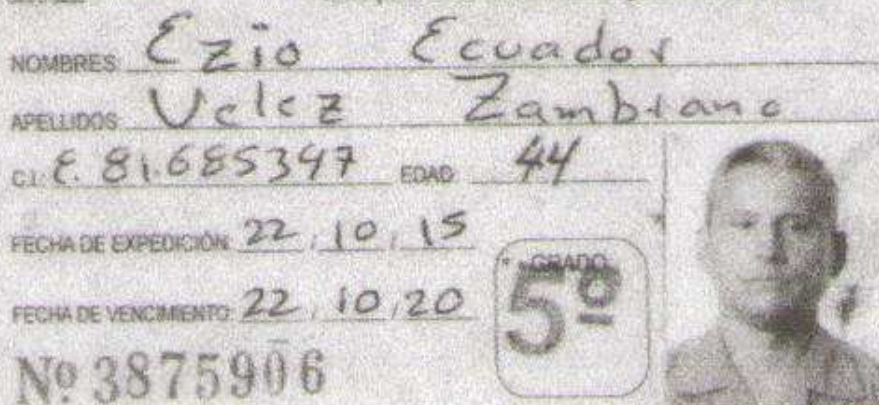 NOMBRES Ezio Ecuador
APELLIDOS Velez Zambrano
C.I. E. 81.685397 EDAD 44
FECHA DE EXPEDICIÓN 22 / 10 / 15
* GRADO
5º
FECHA DE VENCIMIENTO 22 / 10 / 20
Nº 3875906